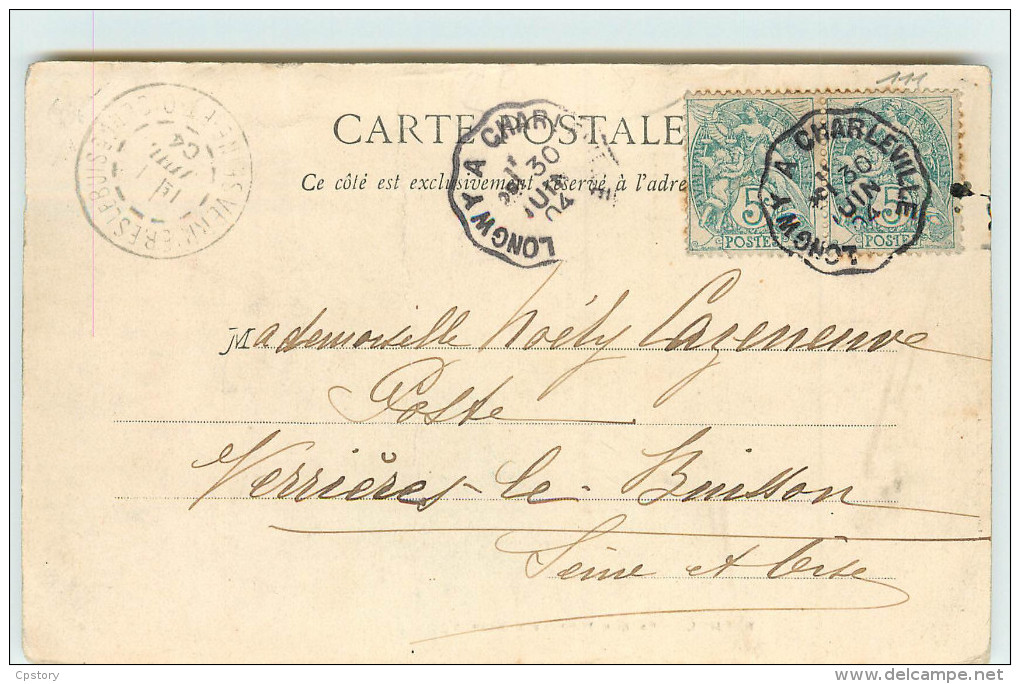 111
CARTE POSTALE
Ce côté est exclusivement réservé à l'adre
LONGWY A CHAR
30
JUIN
04
5
POSTES
5
POSTES
LONGWY A CHARLEVILLE
30
JUIN
04
VERRIERES LE BUISSON
1
04
Mademoiselle Noëly Cazeneuve
Poste
Verrières-le-Buisson
Seine et Oise
Cpstory
delcampe.net